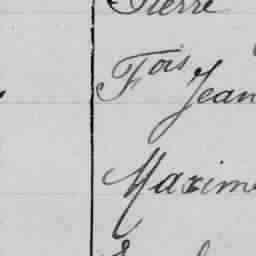 Pierre
Fois Jean
Maxime